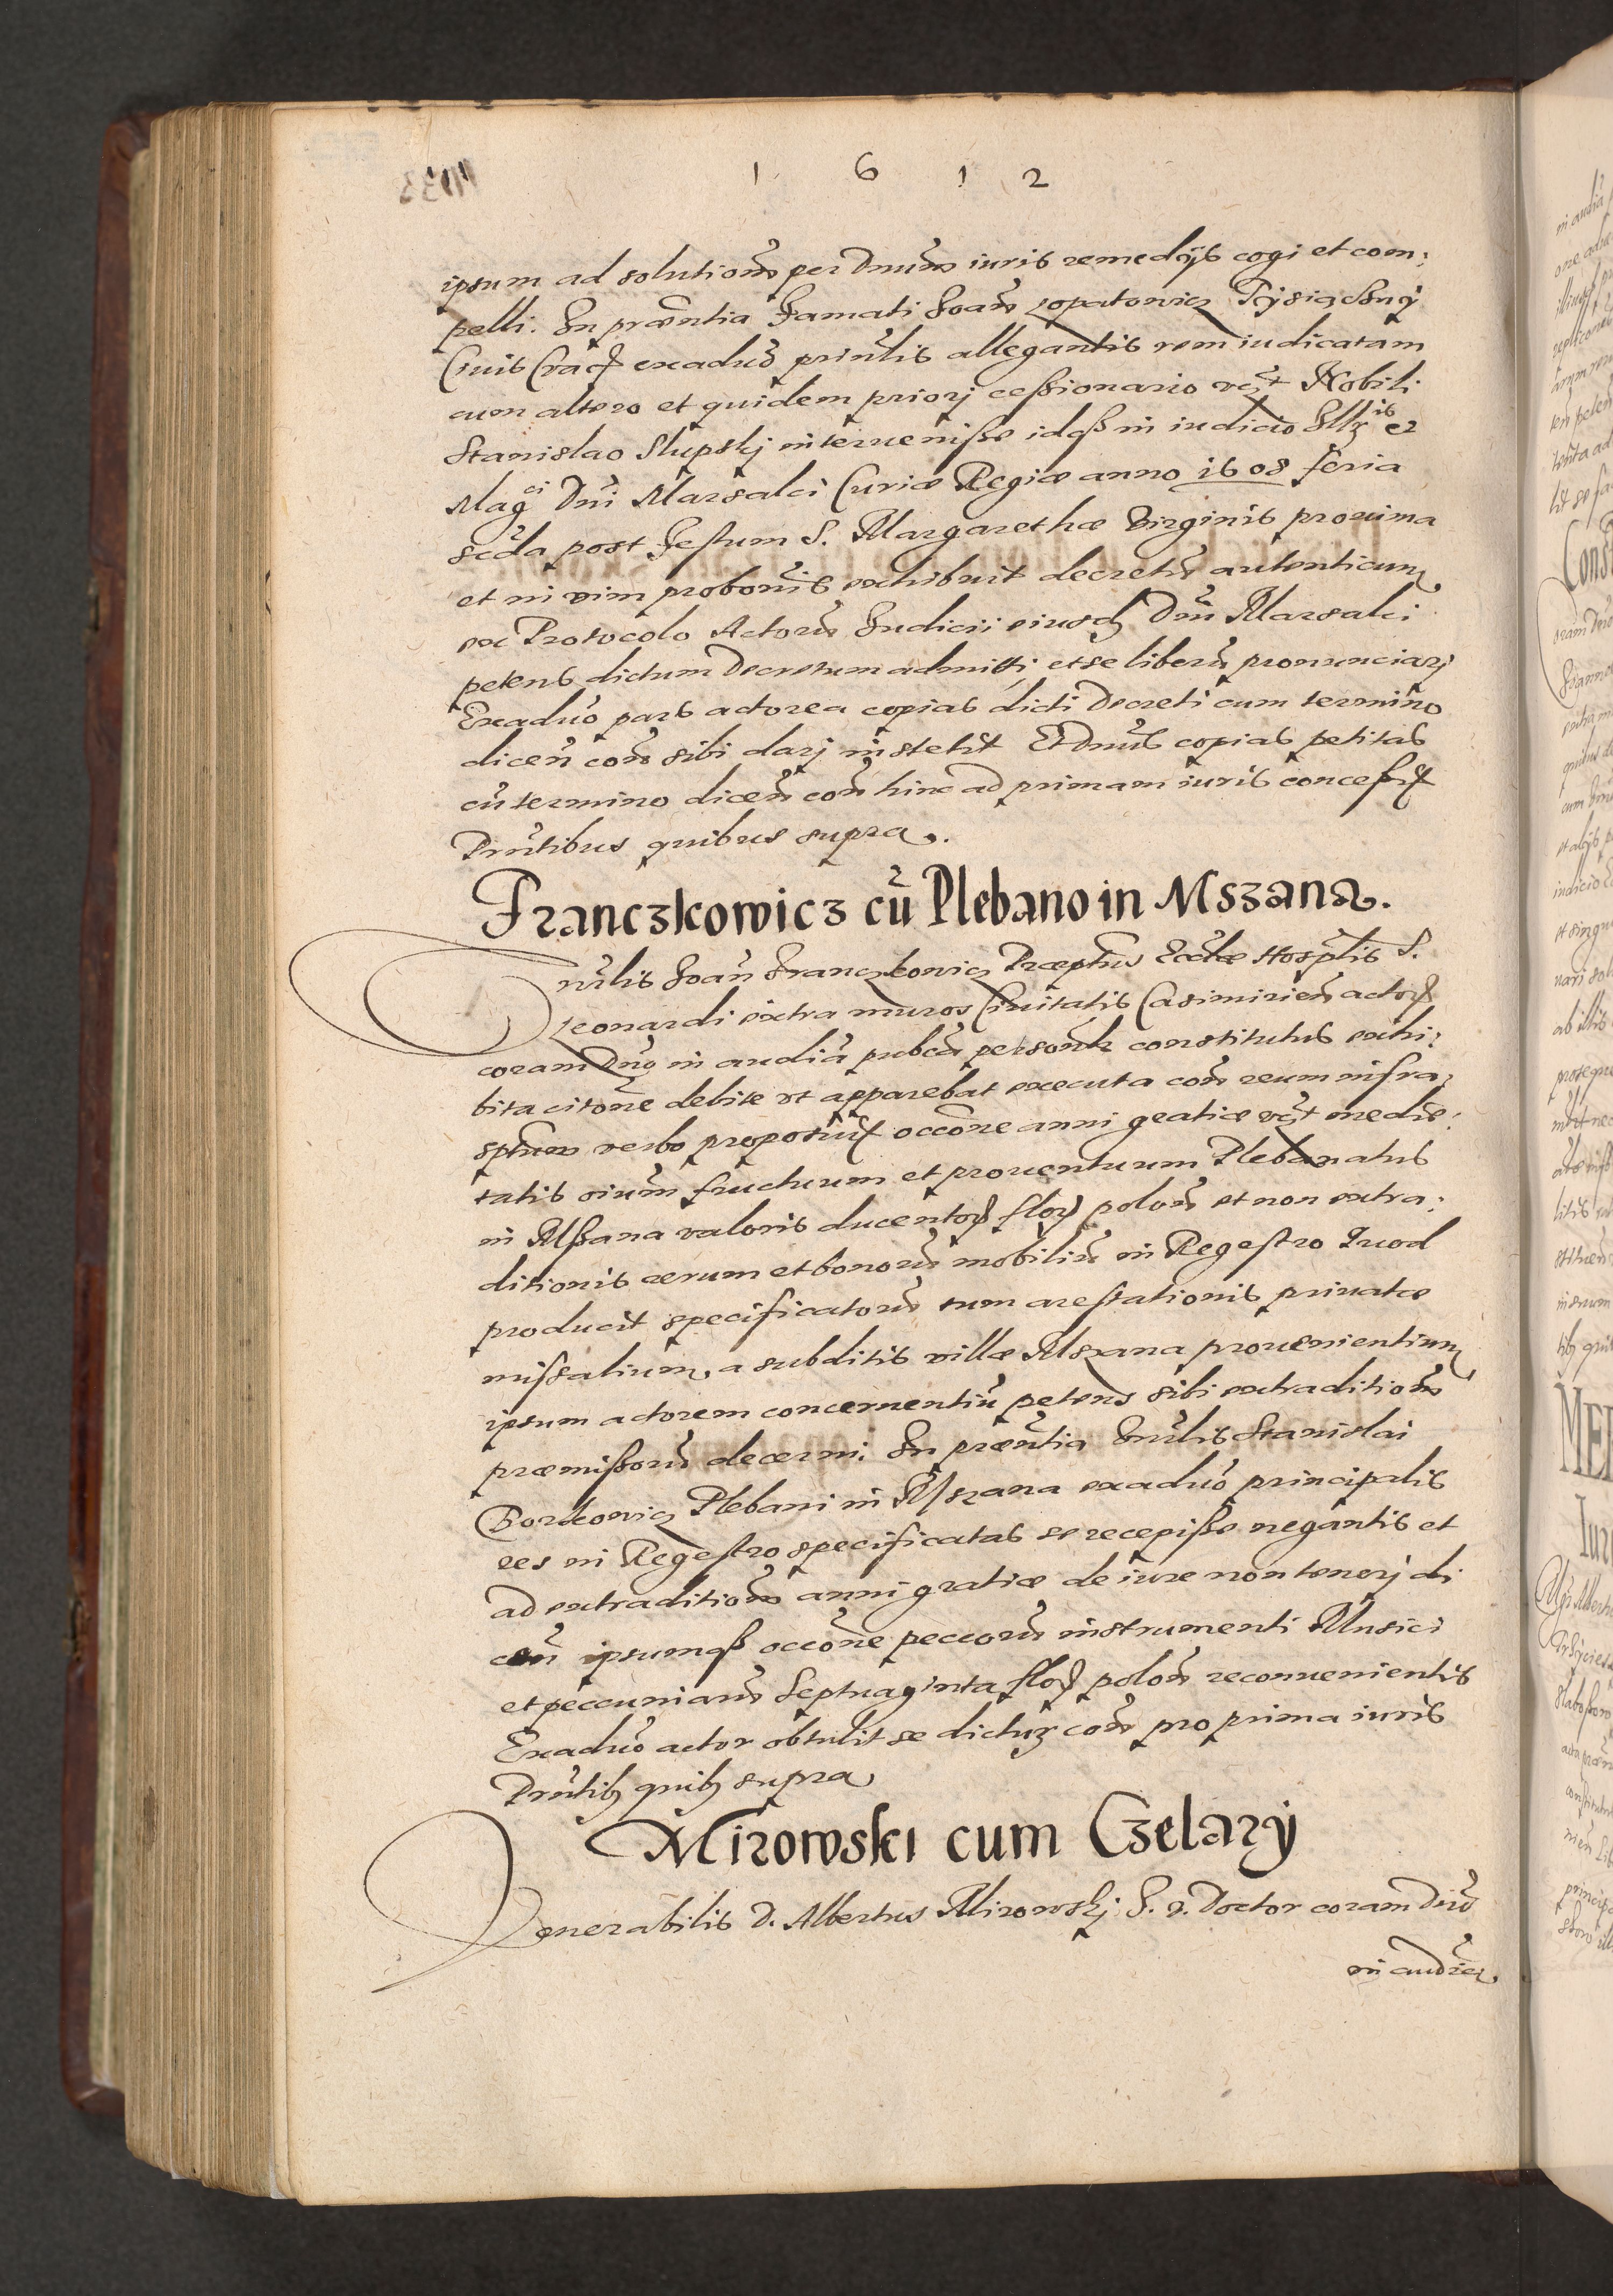 1 6 1 2
ipsum ad solutionē per Dnum iuris remedijs cogi et com:
pelli. In præntia Famati Joañ Lopatowicz
Ciuis Crac exaduō prinlis allegantis rem iudicatam
cum altero et quidem priorj cessionario vcȝt Nobili
Stanislao Slupskj interuenisse idqȝ in iudicio Illȝis et
Magci Dni Marsalci Curiæ Regiæ anno 1608 feria
scda post Festum S. Margarethæ Virginis proxima
et in vim probonis exhibuit decretū autenticum
ex Protocolo Actorū Judicii eiusdȝ Dni Marsalci
petens dictum Decretum admitti, et se liberū pronunciarj
Exaduō pars actorea copias dicti Decreti cum termino
dicen̄ con̄ sibi darj institit Et Dnus copias petitas
cū termino dicen̄ con̄ hinc ad primam iuris concessit
Prntibus quibus supra.
Franczkowicz cū Plebano in Mszana.
Vnlis Joan̄ Franczkowicz Præptus Eccłæ Hosplis S.
Leonardi extra muros Ciuitatis Casimirien̄ actor
coram Dno in audiā pubca personłr constitutus exhi:
bita citone debite vt apparebat executa con̄ reum infra:
sptum verbo proposuit occone anni gratiæ vcȝt medie:
tatis oium fructuum et prouentuum Plebanatus
in Mszana valoris ducentoȝ floȝ polon̄ et non extra:
ditionis rerum et bonorū mobiliū in Regestro quod
producit specificatorū tum arestationis priuatæ
missalium, a subditis villæ Mszana prouenientium
ipsum actorem concernentiū petens sibi extraditionē
præmissorū decerni. In præntia Vnlis Stanislai
Borkowicz Plebani in Mszana exaduō principalis
res in Regestro specificatas se recepisse negantis et
ad extraditionē anni gratiæ de iure non tenerj di
cen̄ ipsumqȝ occone peccorū instrumenti Musici
et pecuniarū Septuaginta floȝ polon̄ reconuenientis
Exaduō actor obtulit se dictuȝ con̄ pro prima iuris
Prntibȝ quibȝ supra
Mirowski cum Czelarÿ
Venerabilis D. Albertus Mirowskj S. T. Doctor coram Dno
in audiēa